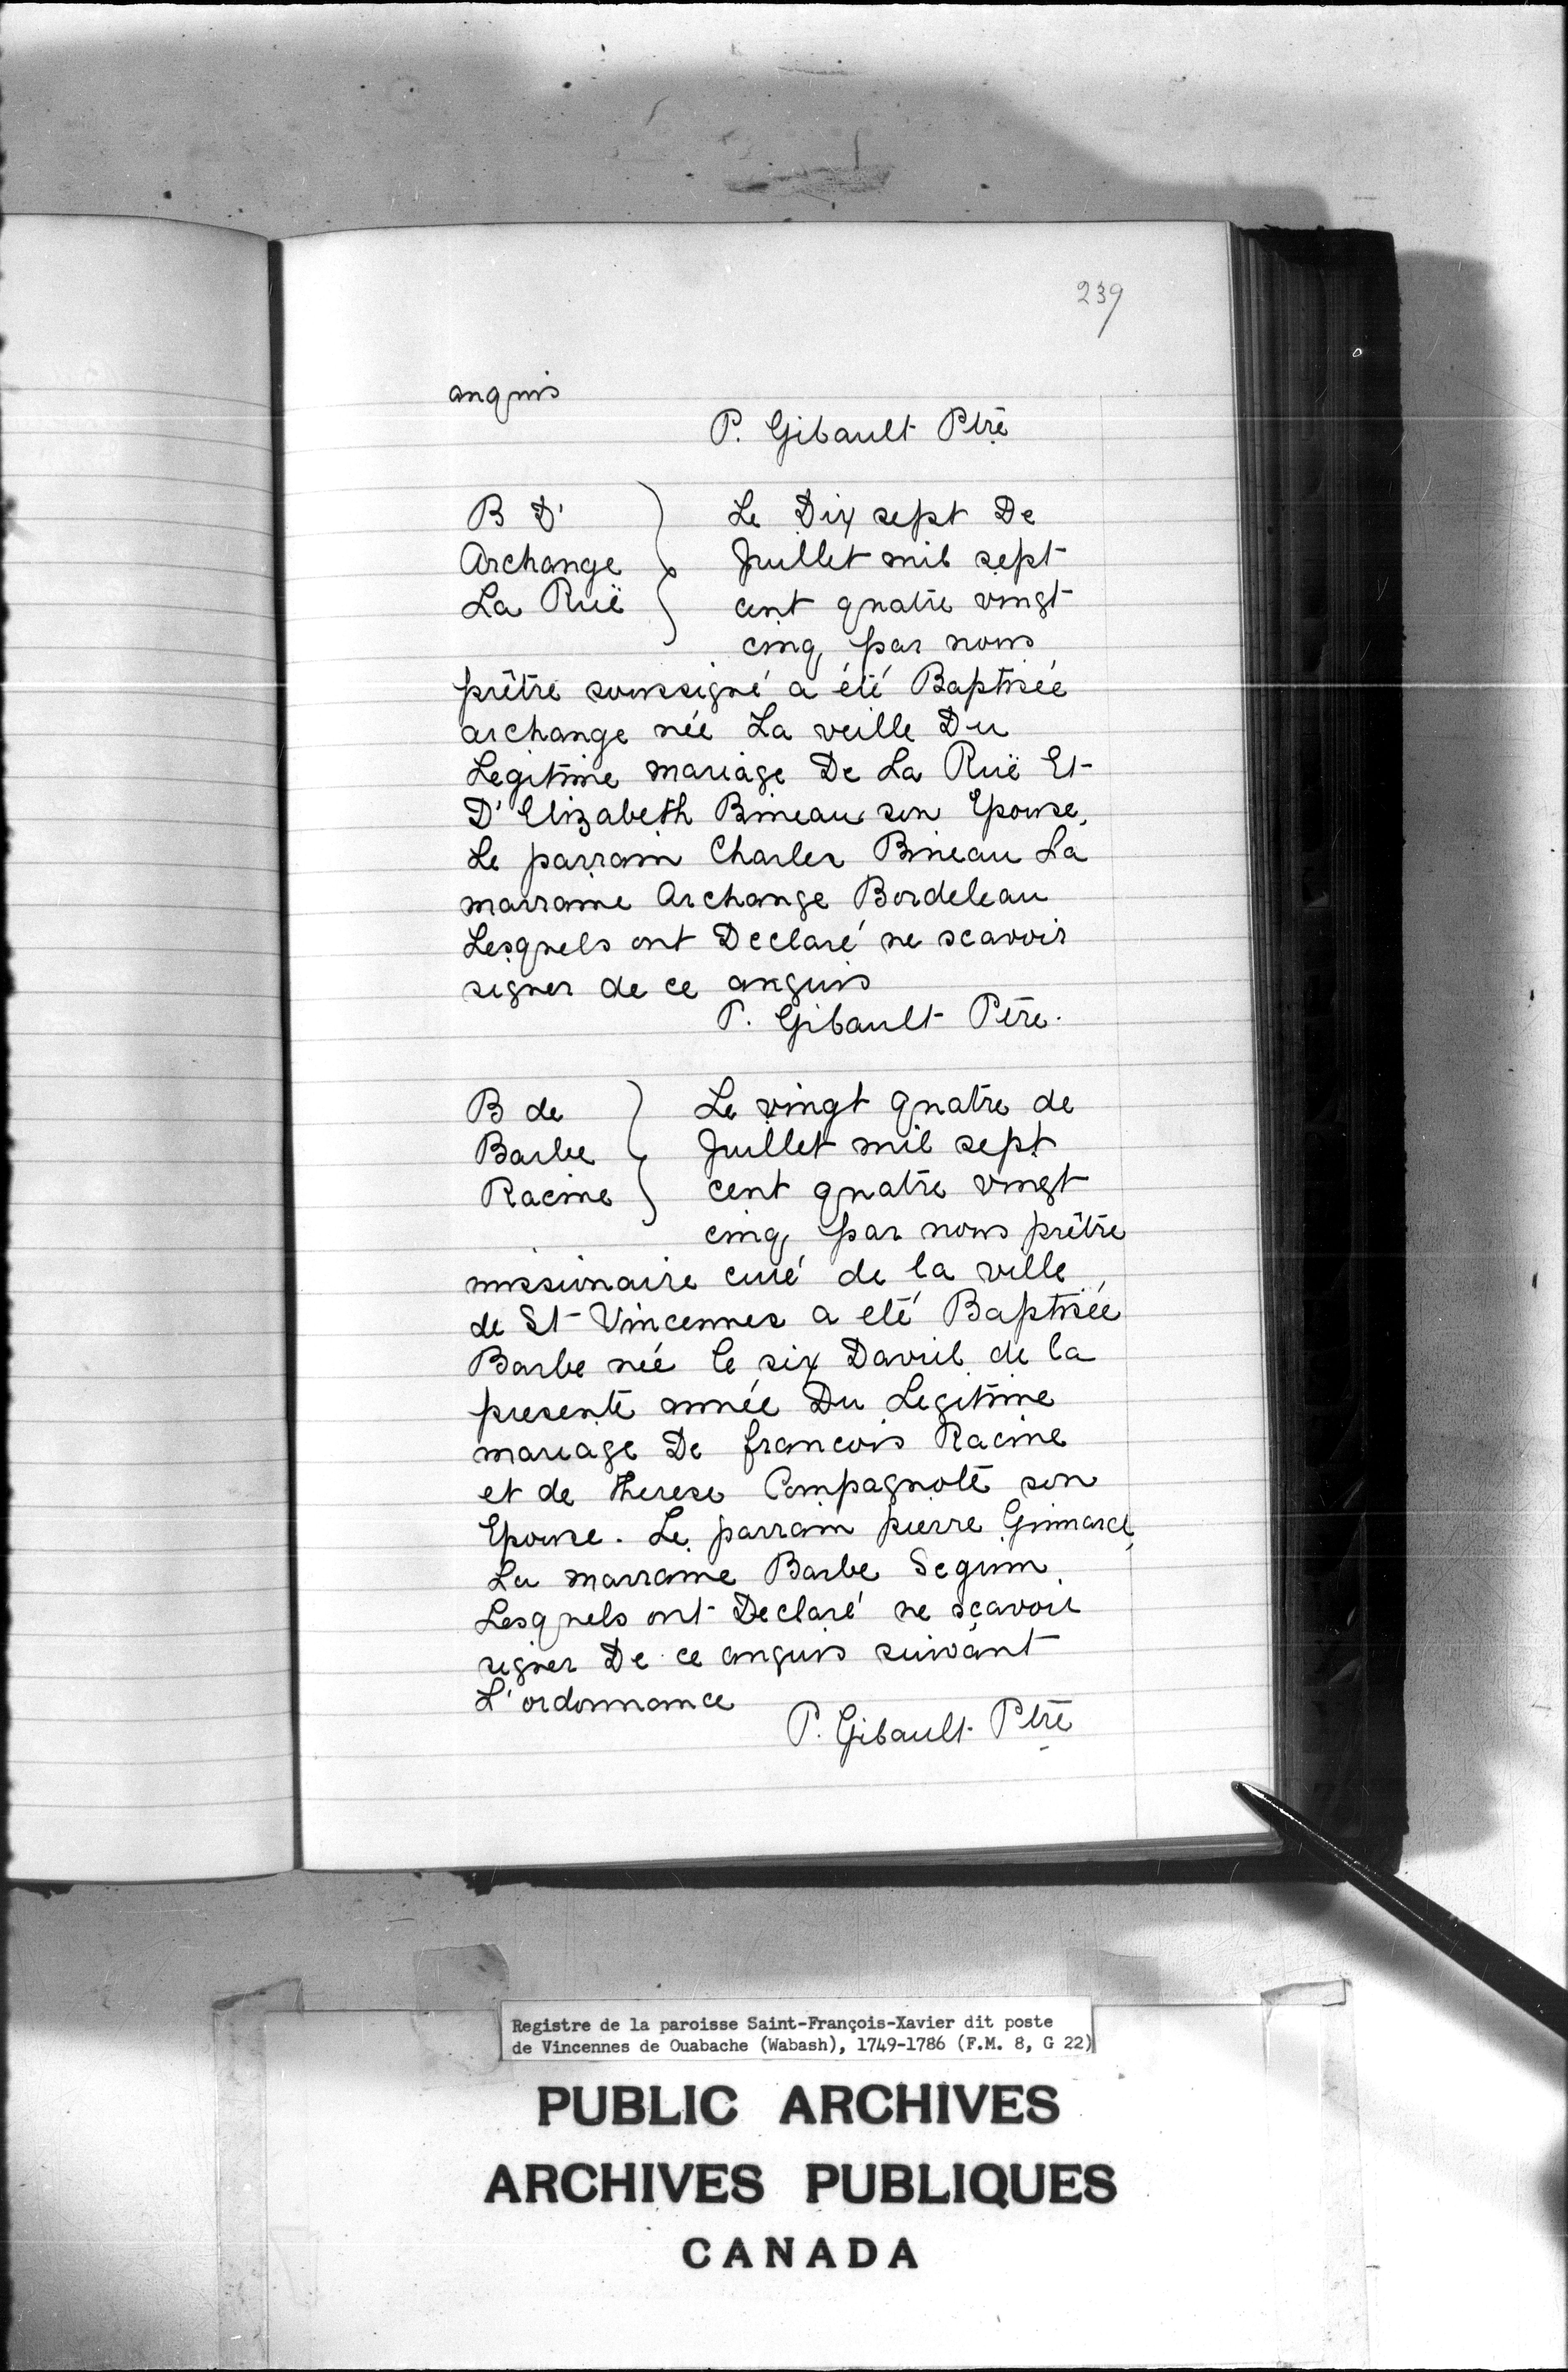 239
anquis
P. Gibault Ptre
B D'
Archange
La Ruë
Le Dix sept De
Juillet mil sept
cent quatre vingt
cinq par nous
prêtre soussigné a été Baptisée
archange née La veille Du
Legitime mariage De La Ruë Et
D'Elizabeth Bineau son Epouse.
Le parrain Charles Bineau La
marraine Archange Bordeleau
Lesquels ont Declaré ne scavoir
signer de ce anquis
P. Gibault Ptre.
B de
Barbe
Racine
Le vingt quatre de
Juillet mil sept
cent quatre vingt
cinq par nous prêtre
missionaire curé de la ville
de St Vincennes a eté Baptisée
Barbe née le six Davril de la
presente année Du Legitime
mariage De francois Racine
et de therese Compagnote son
Epouse. Le parrain pierre Guimard
La marraine Barbe Seguin
Lesquels ont Declaré ne scavoir
signer De ce anquis suivant
L'ordonnance
P. Gibault Ptre
Registre de la paroisse Saint-François-Xavier dit poste
de Vincennes de Ouabache (Wabash), 1749-1786 (F.M. 8, G 22)
PUBLIC ARCHIVES
ARCHIVES PUBLIQUES
CANADA